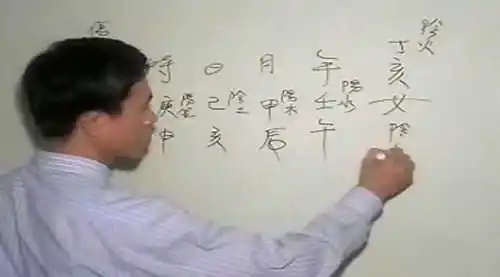 陰火
時 日 月 年 丁亥
庚陽金 己陰土 甲陽木 壬陽水 女
申 亥 辰 午 陰